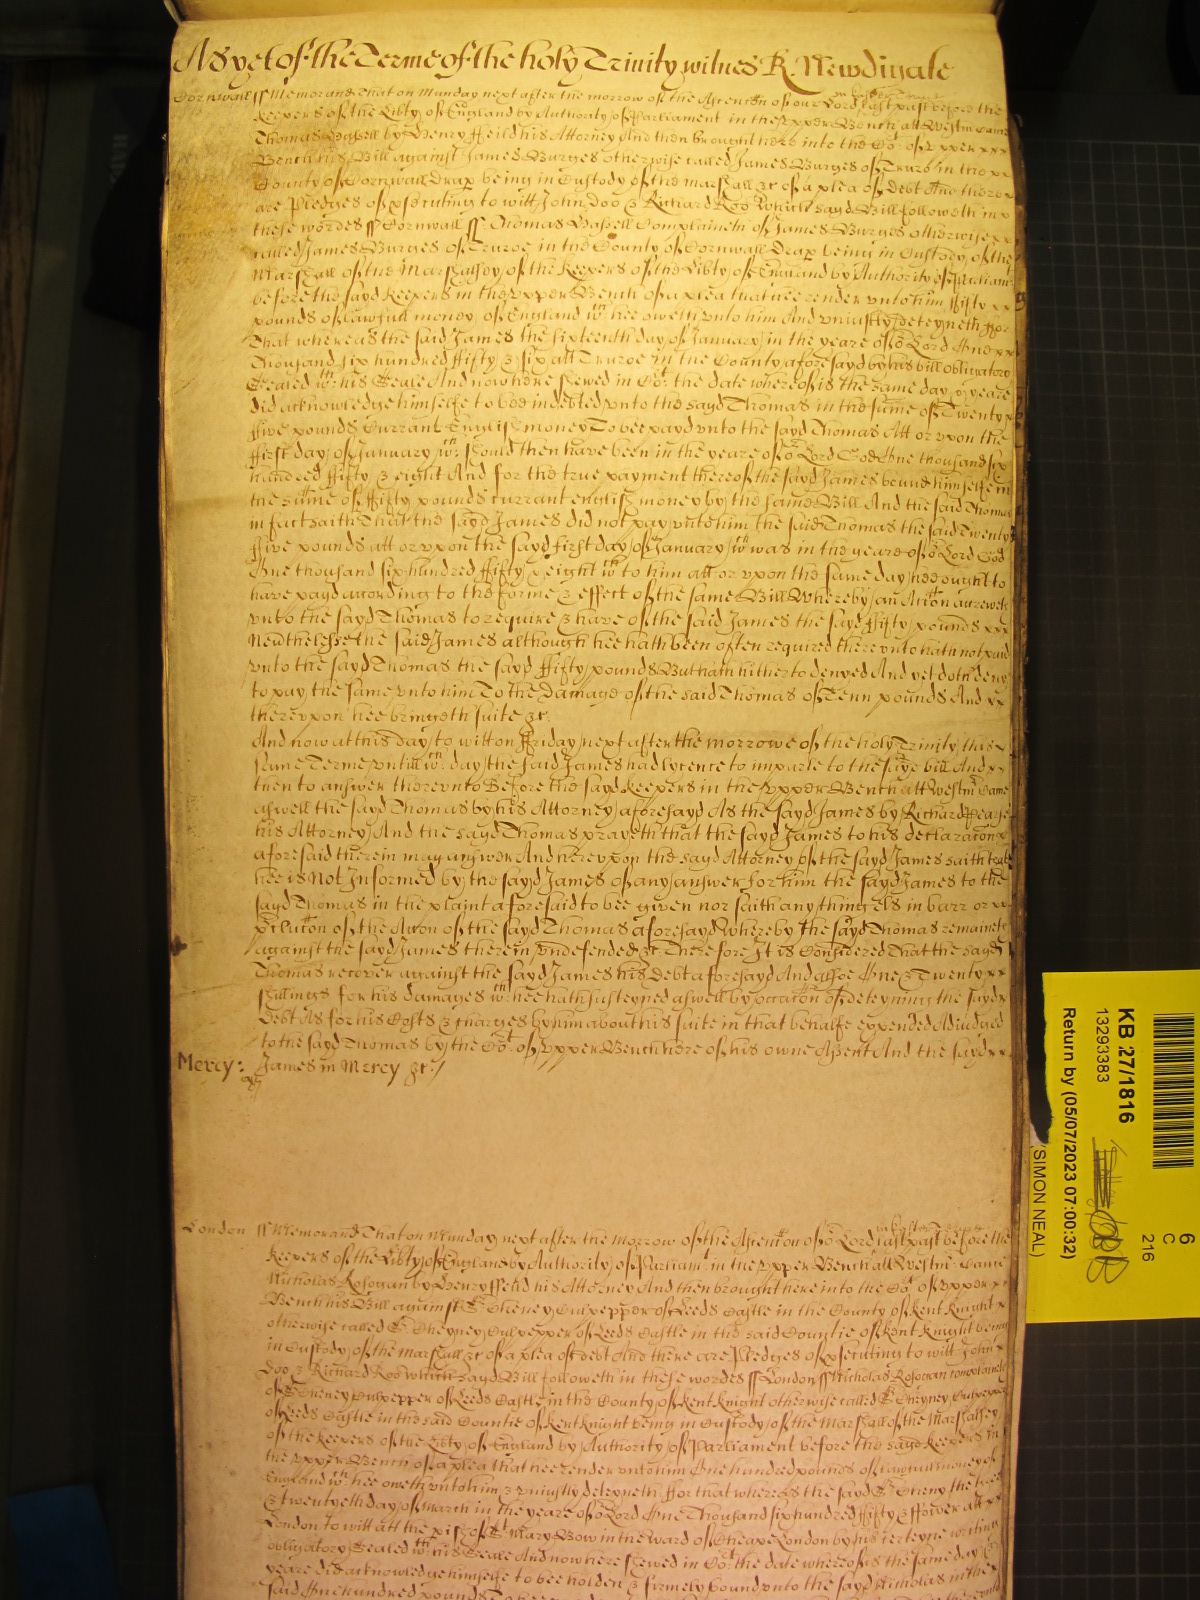 As yet of the Terme of the holy Trinity witnes R. Newdigate
Cornwall ss Memorand That on Munday next after the morrow of the Ascention of our Lord last past before the
in Easter Terme
keepers of the Libty of England by Authority of Parliament in the Upper Bench att Westm Came
Thomas by Henry Feild his Attorney And then brought here into the Cot of Upper
Bench his Bill against James Burges otherwise called James Burges of Truro in the
County of Cornwall Drap being in Custody of the Marshall &c of a plea of Debt And there
are Pledges of psecuting to witt John Doo & Richard Roo Which sayd Bill followeth in
these wordes ss Cornwall ss Thomas Complaineth of James Burges otherwise
called James Burges of Truroe in the County of Cornwall Drap being in Custody of the
Marshall of the Marshalsey of the keepers of the Libty of England by Authority of Parliam
before the sayd keepers in the Upper Bench of a plea that hee render unto him ffifty
pounds of lawfull money of England wch hee oweth unto him And uniustly deteyneth ffor
That whereas the said James the sixteenth day of January in the yeare of or Lord One
Thousand six hundred ffifty & six att Truroe in the County aforesayd by his bill obligatory
Sealed wth his Seale And now here shewed in Cot the date whereof is the same day & yeare
did acknowledge himselfe to bee indebted unto the sayd Thomas in the sume of Twenty
ffive pounds Currant English money To bee payd unto the sayd Thomas Att or upon the
ffirst day of January wch should then have been in the yeare of or Lord God One thousand six
hundred ffifty & eight And for the true payment thereof the sayd James bound himselfe in
the sume of ffifty pounds currant english money by the same Bill And the said Thomas
in fact saith That the sayd James did not pay unto him the said Thomas the said Twenty
ffive pounds att or upon the sayd first day of January wch was in the yeare of or Lord God
One thousand six hundred ffifty & eight wch to him att or upon the same day hee ought to
have payd according to the forme & effect of the same Bill Whereby an Accon accrewed
unto the sayd Thomas to require & have of the said James the sayd ffifty pounds
Nevthelesse the said James although hee hath been often required thereunto hath not paid
unto the sayd Thomas the sayd ffifty pounds But hath hitherto denyed And yet doth deny
to pay the same unto him To the Damage of the said Thomas of Tenn pounds And
thereupon hee bringeth suite &c.
And now at this day to witt on ffriday next after the morrowe of the holy Trinity this
same Terme untill wch day the said James had lycence to imparle to the sayd bill And
then to answer thereunto Before the sayd keepers in the Upper Bench att Westm Came
aswell the sayd Thomas by his Attorney aforesayd As the sayd James by Richard
his Attorney And the sayd Thomas prayeth that the sayd James to his declaracon
aforesaid therein may answer And hereupon the sayd Attorney of the sayd James saith that
hee is Not Informed by the sayd James of any answer for him the sayd James to the
sayd Thomas in the plaint aforesaid to bee given nor saith any thing els in barr or
pclusion of the Accon of the sayd Thomas aforesayd Whereby the sayd Thomas remaineth
against the sayd James therein undefended &c Therefore It is Considered That the sayd
Thomas recover against the sayd James his Debt aforesayd And alsoe One & Twenty
shillings for his damages wch hee hath susteyned aswell by occacon of deteyning the sayd
debt As for his Costs & charges by him about his suite in that behalfe expended Adiudged
to the sayd Thomas by the Cot of Upper Bench here of his owne Assent And the sayd
Mercy: James in Mercy &c./
London ss Memorand That on Munday next after the morrow of the Ascention of or Lord last past before the
in Easter Terme
keepers of the Libty of England by Authority of Parliamt in the Upper Bench att Westm Came
Nicholas Rosogan by Henry Feild his Attorney And then brought here into the Cot of Upper
Bench his Bill against Sr Cheney Culpepper of Leeds Castle in the County of Kent Knight
otherwise called Sr Cheyney Culpepper of Leeds Castle in the said Countie of Kent Knight being
in Custody of the Marshall &c of a plea of debt And there are Pledges of psecuting to witt John
Doo & Richard Roo which sayd Bill followeth in these wordes ss London ss Nicholas Rosogan complaineth
of Sr Cheney Culpepper of Leeds Castle in the County of Kent Knight otherwise called Sr Cheyney Culpepper
of Leeds Castle in the said Countie of Kent Knight being in Custody of the Marshall of the Marshalsey
of the keepers of the Libty of England by Authority of Parliament before the sayd keepers in
the Upper Bench of a plea that hee render unto him One hundred pounds of lawfull money of
England wch hee oweth unto him & uniustly deteyneth ffor that whereas the sayd Sr Cheney the
& twentyeth day of March in the yeare of or Lord One Thousand six hundred ffifty & ffower att
London to witt att the pish of St Mary Bow in the ward of Cheape London by his certeyne writing
obligatory Sealed wth his Seale And now here shewed in Cot the date whereof is the same day &
yeare did acknowledge himselfe to bee holden & firmely bound unto the sayd Nicholas in the
said One hundred pounds
6
C
216
KB 27/1816
13293383
Return by (05/07/2023 07:00:32)
(SIMON NEAL)